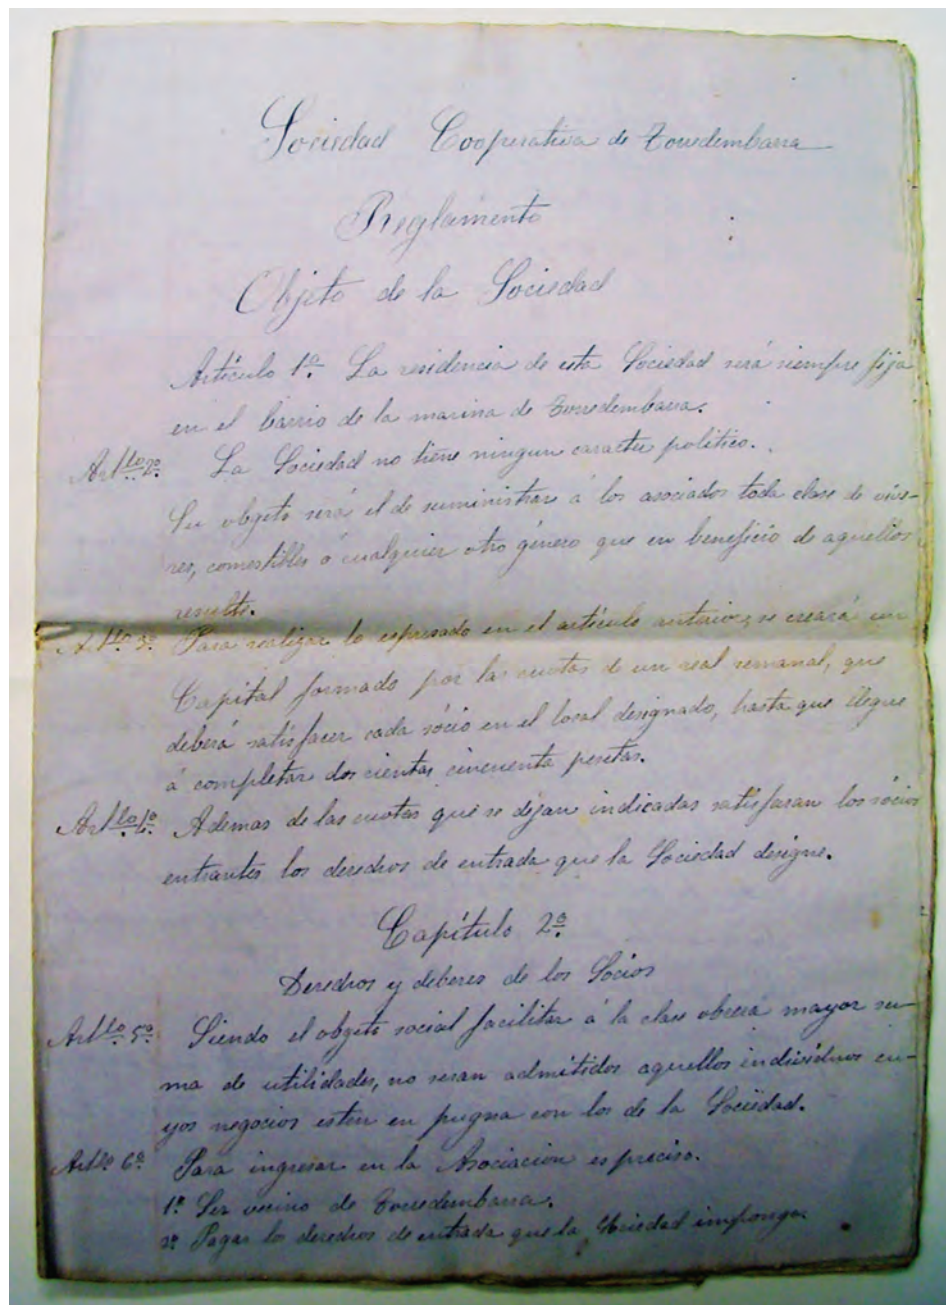 Sociedad Cooperativa de Torredembarra
Reglamento
Objeto de la Sociedad
Artículo 1º. La residencia de esta Sociedad será siempre fija
en el barrio de la marina de Torredembarra.
Artlo 2º. La Sociedad no tiene ningun caracter politico.
Su objeto será el de suministrar á los asociados toda clase de víve-
res, comestibles ó cualquier otro género que en beneficio de aquellos
resulte.
Artlo 3º. Para realizar lo espresado en el artículo anterior, se creará un
Capital formado por las cuotas de un real semanal, que
deberá satisfacer cada sócio en el local designado, hasta que llegue
á completar dos cientas cincuenta pesetas.
Artlo 4º. Ademas de las cuotas que se dejan indicadas satisfaran los sócios
entrantes los derechos de entrada que la Sociedad designe.
Capítulo 2º.
Derechos y deberes de los Socios
Artlo 5º. Siendo el objeto social facilitar á la clase obrera mayor su-
ma de utilidades, no seran admitidos aquellos individuos cu-
yos negocios esten en pugna con los de la Sociedad.
Artlo 6º. Para ingresar en la Asociacion es preciso.
1º. Ser vecino de Torredembarra.
2º. Pagar los derechos de entrada que la Sociedad imponga.